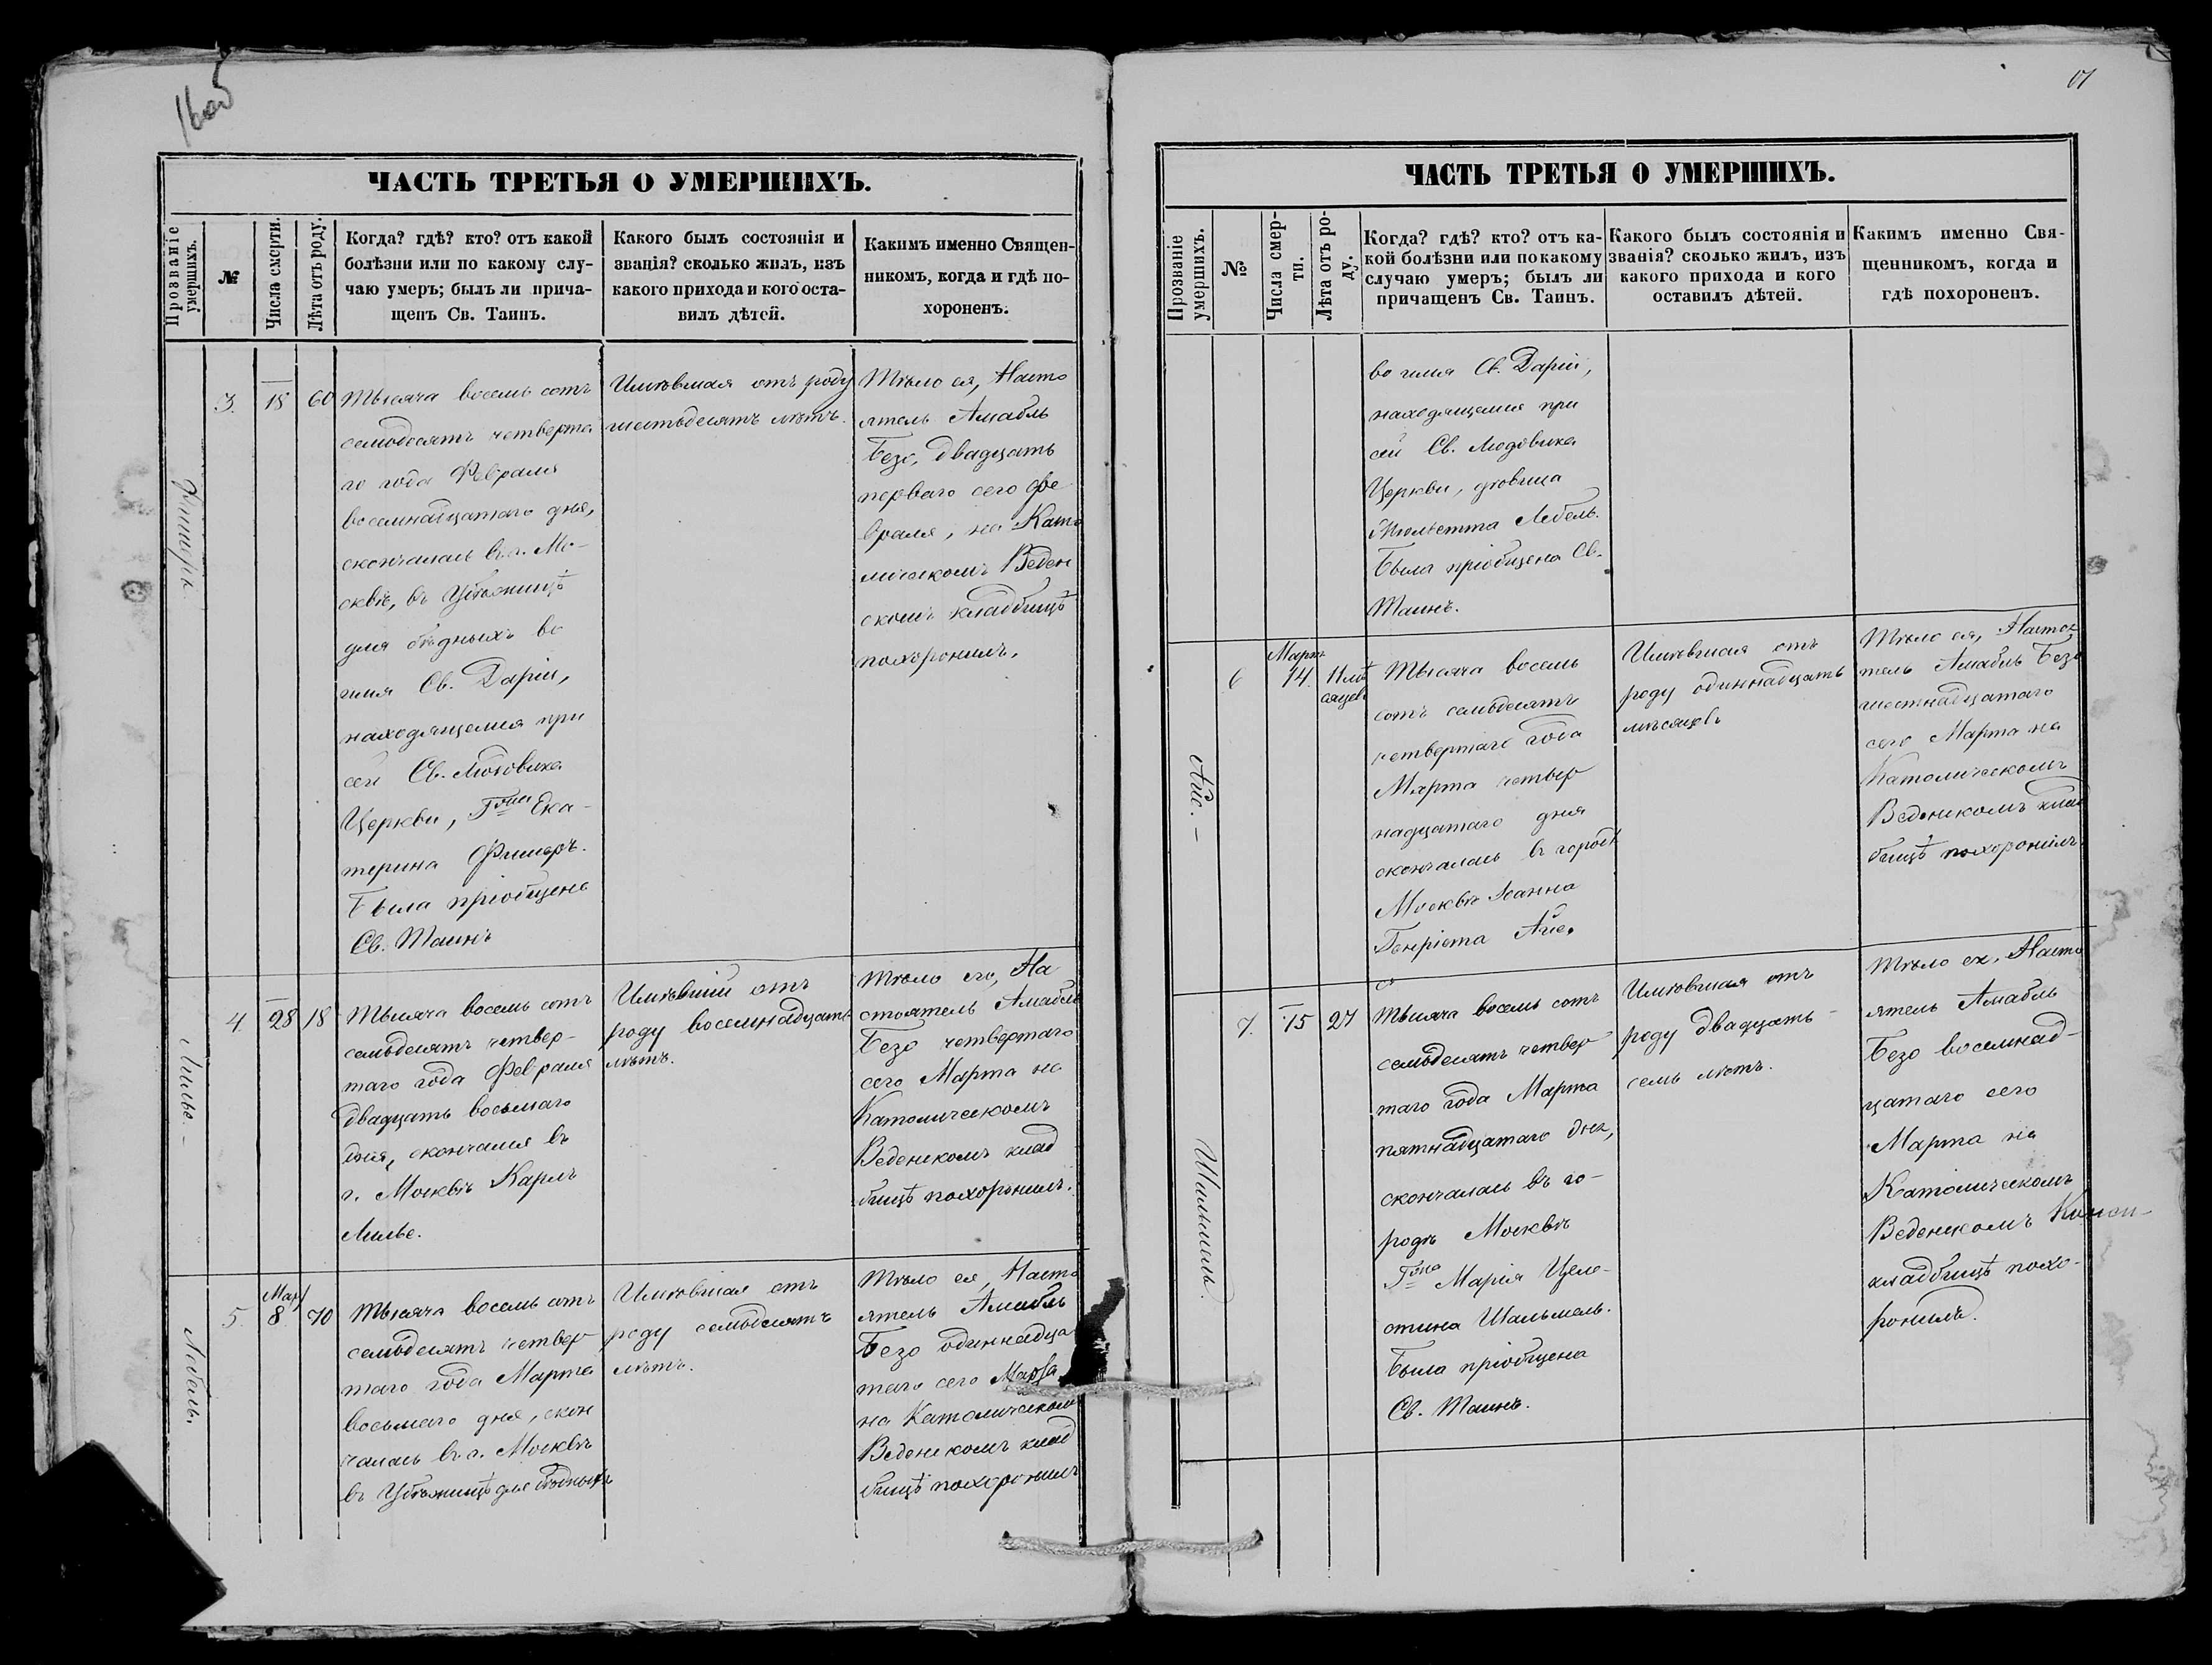 16об
ЧАСТЬ ТРЕТЬЯ О УМЕРШИХЪ.
Прозваніе умершихъ.
№
Числа смерти.
Лѣта отъ роду.
Когда? гдѣ? кто? отъ какой
болѣзни или по какому слу-
чаю умеръ; былъ ли прича-
щенъ Св. Таинъ.
Какого былъ состоянія и
званія? сколько жилъ, изъ
какого прихода и кого оста-
вилъ дѣтей.
Какимъ именно Священ-
никомъ, когда и гдѣ по-
хороненъ.
Фишеръ
3.
18
60
Тысяча восемь сотъ
семьдесятъ четверта
го года Февраля
восемнадцатаго дня,
скончалась въ г. Мо-
сквѣ, въ Убѣжищѣ
для бѣдныхъ во
имя Св. Даріи,
находящемся при
сей Св. Людовика
Церкви, Гжа Ека-
терина Фишеръ.
Была пріобщена
Св. Таинъ
Имѣвшая отъ роду
шестьдесятъ лѣтъ.
Тѣло ея, Насто
ятель Амабль
Безо, двадцать
перваго сего фе
враля, на Като
лическомъ Веден
скомъ кладбищѣ
похоронилъ.
Лилье.-
4.
28
18
Тысяча восемь сотъ
семьдесятъ четвер-
таго года Февраля
двадцать восьмаго
дня, скончался въ
г. Москвѣ Карлъ
Лилье.
Имѣвшій отъ
роду восемнадцать
лѣтъ.
Тѣло его, На
стоятель Амабль
Безо четвертаго
сего Марта на
Католическомъ
Веденскомъ клад
бищѣ похоронилъ.
Лебель.
5.
Мар
8.
70
Тысяча восемь сотъ
семьдесятъ четвер
таго года Марта
восьмаго дня, скон
чалась въ г. Москвѣ
въ Убѣжищѣ для бѣдныхъ
Имѣвшая отъ
роду семьдесятъ
лѣтъ.
Тѣло ея, Насто
ятель Амабль
Безо одиннадца
таго сего Марта
на Католическомъ
Веденскомъ клад
бищѣ похоронилъ
ЧАСТЬ ТРЕТЬЯ О УМЕРШИХЪ.
Прозваніе умершихъ.
№
Числа смер-
ти.
Лѣта отъ ро-
ду.
Когда? гдѣ? кто? отъ ка-
кой болѣзни или по какому
случаю умеръ; былъ ли
причащенъ Св. Таинъ.
Какого былъ состоянія и
званія? сколько жилъ, изъ
какого прихода и кого
оставилъ дѣтей.
Какимъ именно Свя-
щенникомъ, когда и
гдѣ похороненъ.
во имя Св. Даріи,
находящемся при
сей Св. Людовика
Церкви, дѣвица
Жюльетта Лебель.
Была пріобщена Св.
Таинъ.
Айе.-
6
Марта
14.
11 мѣ
сяцевъ
Тысяча восемь
сотъ семьдесятъ
четвертаго года
Марта четыр
надцатаго дня
скончалась въ городѣ
Москвѣ Іоанна
Генріета Айе.
Имѣвшая отъ
роду одиннадцать
мѣсяцовъ
Тѣло ея, Настоя
тель Амабль Безо
шестнадцатаго
сего Марта на
Католическомъ
Веденскомъ клад
бищѣ похоронилъ
Шальмель.
7.
15
27
Тысяча восемь сотъ
семьдесятъ четвер
таго года Марта
пятнадцатаго дня,
скончалась въ го-
родѣ Москвѣ
Гжа Марія Целе-
стина Шальмель.
Была пріобщена
Св. Таинъ.
Имѣвшая отъ
роду двадцать-
семь лѣтъ.
Тѣло ея, Насто
ятель Амабль
Безо восемнад-
цатаго сего
Марта на
Католическомъ
Веденскомъ
кладбищѣ похо-
ронилъ.